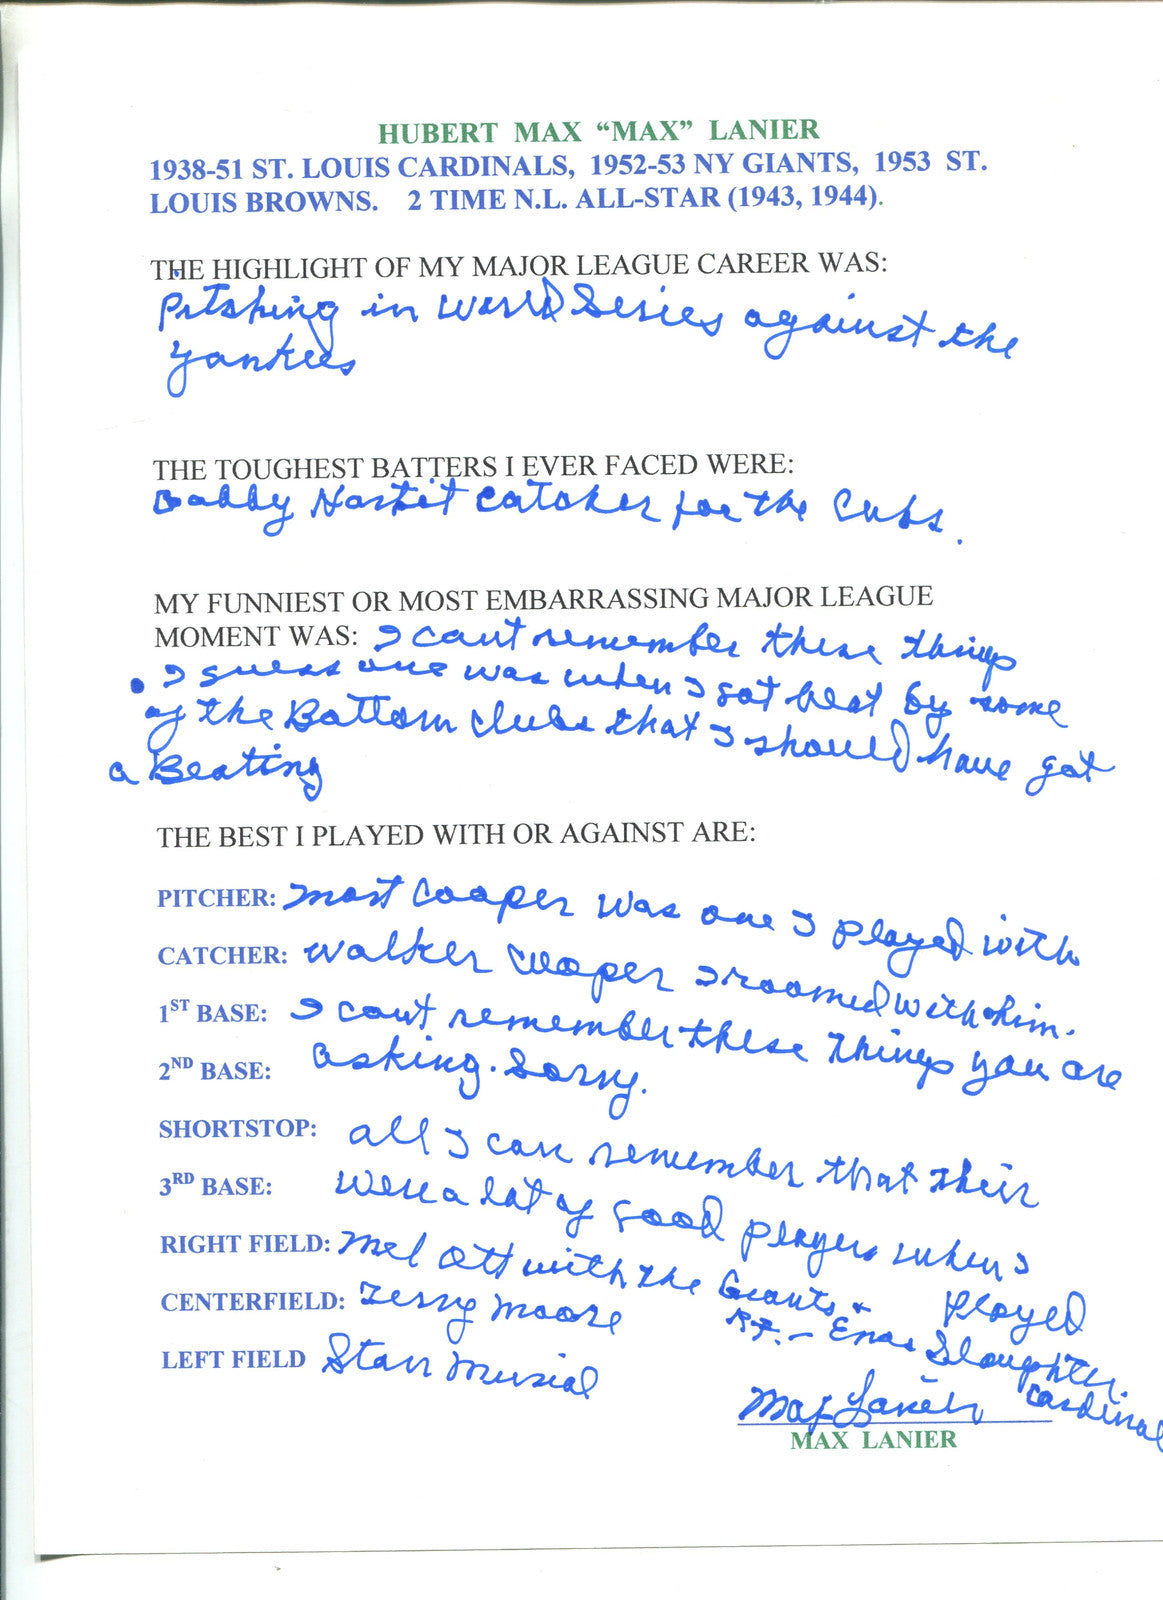 HUBERT MAX “MAX” LANIER
1938-51 ST. LOUIS CARDINALS, 1952-53 NY GIANTS, 1953 ST.
LOUIS BROWNS. 2 TIME N.L. ALL-STAR (1943, 1944).
THE HIGHLIGHT OF MY MAJOR LEAGUE CAREER WAS:
Pitching in World Series against the
Yankees
THE TOUGHEST BATTERS I EVER FACED WERE:
Gabby Hartnit catcher for the Cubs.
MY FUNNIEST OR MOST EMBARRASSING MAJOR LEAGUE
MOMENT WAS: I cant remember these things
. I guess one was when I got beat by some
of the Bottom clubs that I should have got
a Beating
THE BEST I PLAYED WITH OR AGAINST ARE:
PITCHER: Mort Cooper was one I played with
CATCHER: Walker Cooper I roomed with him.
1ST BASE: I cant remember these things you are
2ND BASE: asking. Sorry.
SHORTSTOP: all I can remember that their
3RD BASE: were a lot of good players when I
played
RIGHT FIELD: Mel Ott with the Giants +
R.F. - Enos Slaughter
Cardinal
CENTERFIELD: Terry Moore
LEFT FIELD Stan Musial
Max Lanier
MAX LANIER